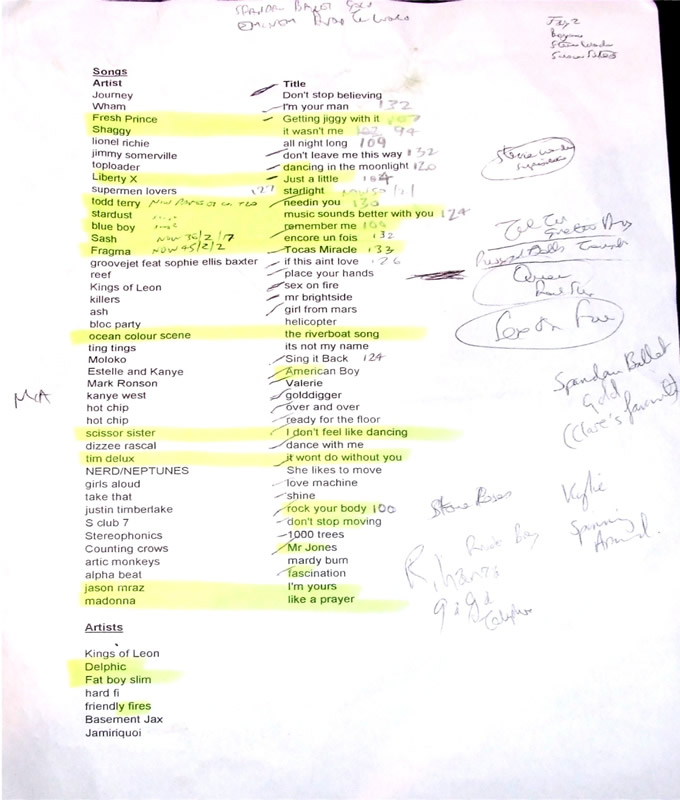 SPANDAU BALLET GOLD
Jay Z
Songs
Artist Title
Journey Don't stop believing
Wham I'm your man 132
Fresh Prince Getting jiggy with it 107
Shaggy it wasn't me 94
lionel richie all night long 109
jimmy somerville don't leave me this way 132
toploader dancing in the moonlight 120
Liberty X Just a little 104
supermen lovers 127 starlight
todd terry needin you 130
stardust music sounds better with you 124
blue boy remember me
Sash NOW 36/2/17 encore un fois 132
Fragma NOW 45/2/2 Tocas Miracle 133
groovejet feat sophie ellis baxter if this aint love 126
reef place your hands
Kings of Leon sex on fire
killers mr brightside
ash girl from mars
bloc party helicopter
ocean colour scene the riverboat song
ting tings its not my name
Moloko Sing it Back 124
Estelle and Kanye American Boy
Mark Ronson Valerie
kanye west golddigger
hot chip over and over
hot chip ready for the floor
scissor sister I don't feel like dancing
dizzee rascal dance with me
tim delux it wont do without you
NERD/NEPTUNES She likes to move
girls aloud love machine
take that shine
justin timberlake rock your body 100
S club 7 don't stop moving
Stereophonics 1000 trees
Counting crows Mr Jones
artic monkeys mardy burn
alpha beat fascination
jason mraz I'm yours
madonna like a prayer
Artists
Kings of Leon
Delphic
Fat boy slim
hard fi
friendly fires
Basement Jax
Jamiriquoi
Stevie Wonder
Queen
Sex on Fire
Spandau Ballet
Gold
(Clare's favourite)
Stone Roses
Kylie
Spinning
Around.
Rihanna